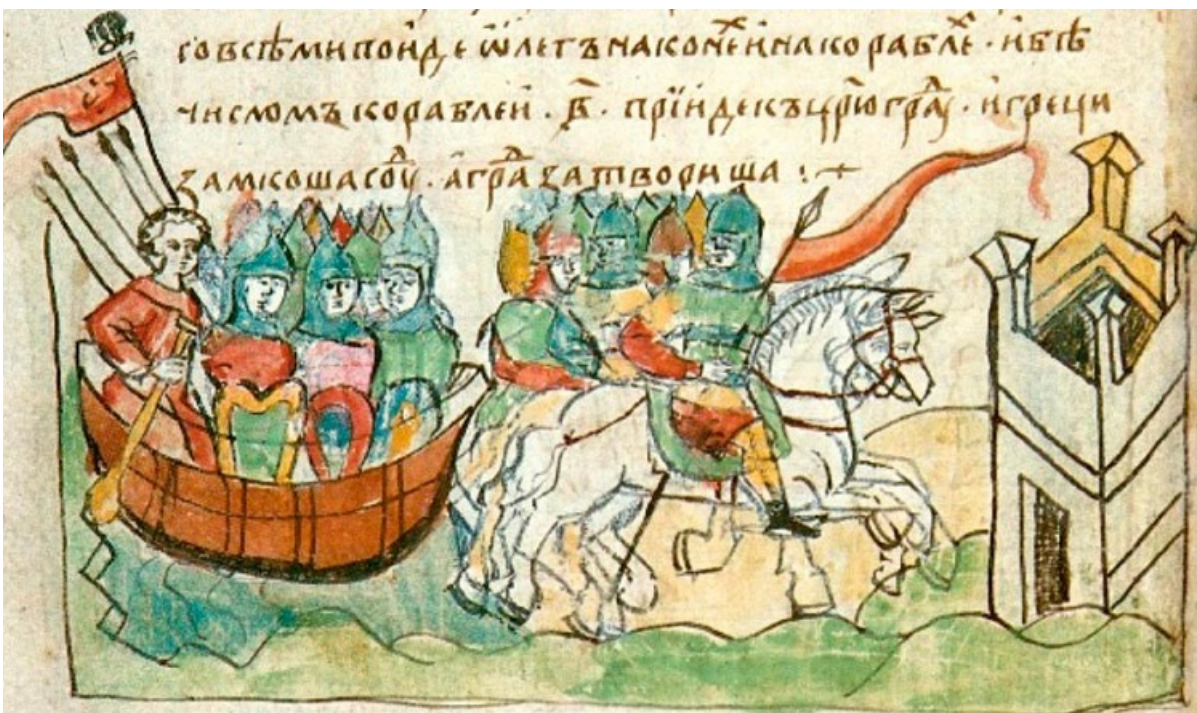 совсѣми поиде ѡлегъ на конеⷯ и на кораблеⷯ · ибѣ
числомъ кораблеи · в҃ · прїиде къ цр҃ю граⷣу · и греци
замкоша соуⷣ · а граⷣ затвориша :+